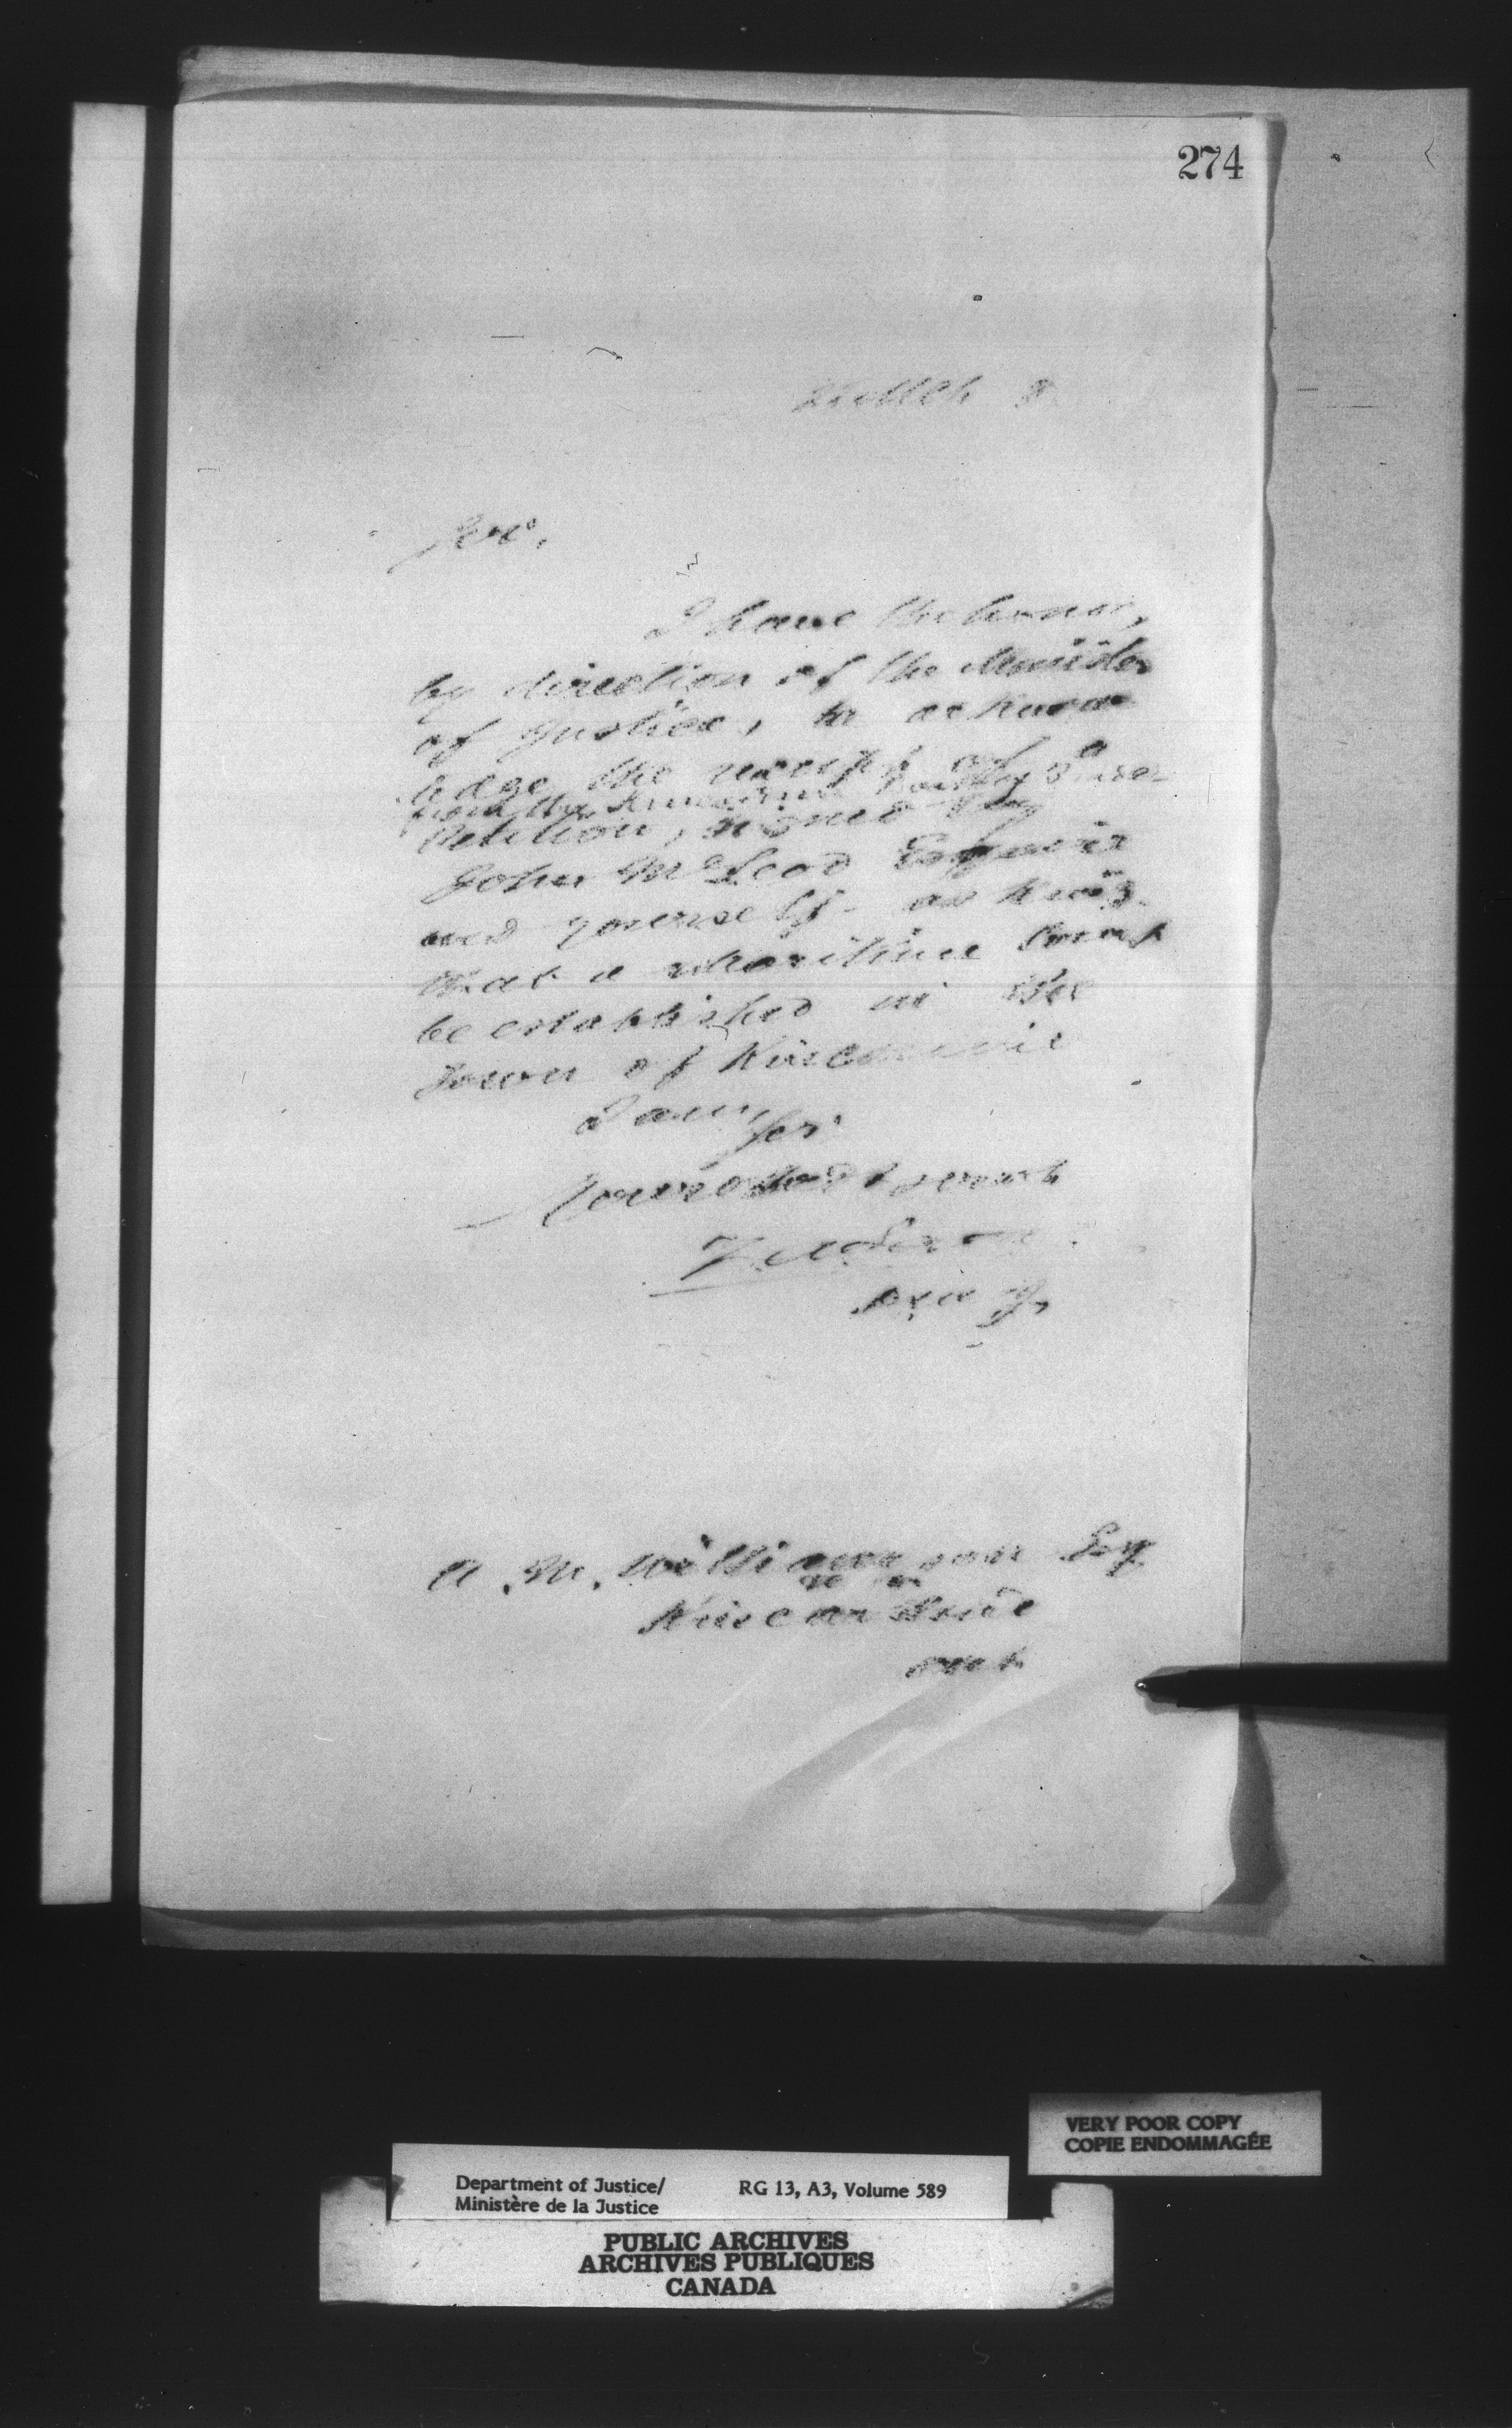 274
March 8
Sir,
I have the honor,
by direction of the Minister
of Justice, to acknow
ledge the receipt of a
from the Kincardine
Petition, signed by
John McLeod Esquire
and yourself - asking
that a Maritime Court
be established in the
Town of Kincardine
I am,
Sir
Your obedt servant
A. M. Williamson Esq
Kincardine
Ont
VERY POOR COPY
COPIE ENDOMMAGÉE
Department of Justice/
Ministère de la Justice
RG 13, A3, Volume 589
PUBLIC ARCHIVES
ARCHIVES PUBLIQUES
CANADA